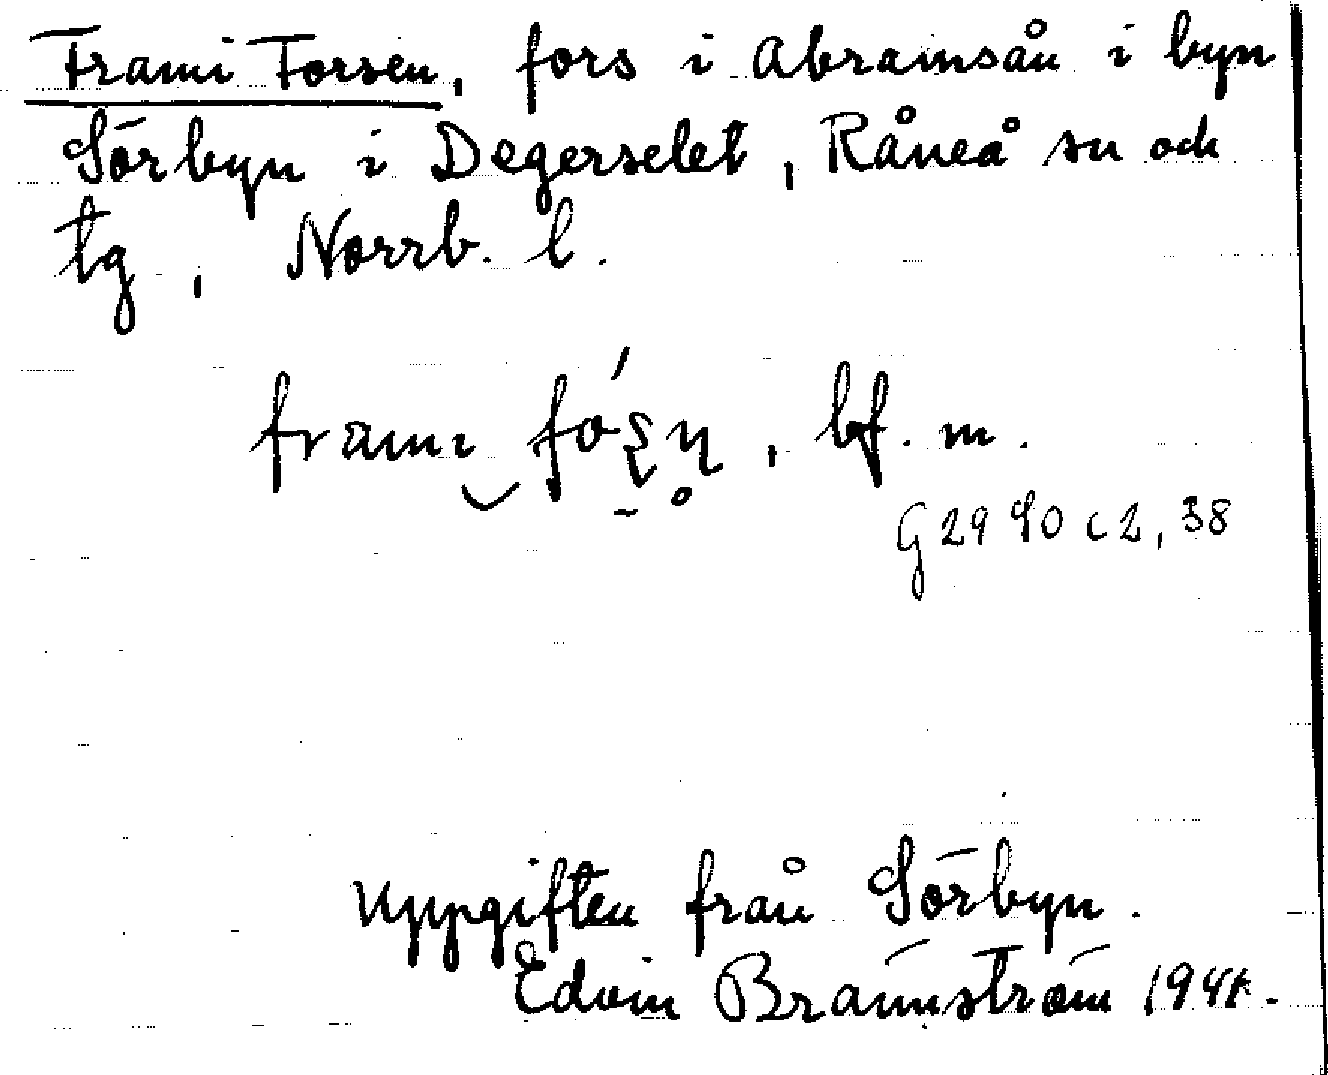 Frami Forsen, fors i Abramsån i byn
Sörbyn i Degerselet, Råneå sn och
tg, Norrb. l.
frami fó̱ʂn̥, bf. m.
G 29 90 c 2, 38
Uppgiften från Sörbyn.
Edvin Brännström 1944.